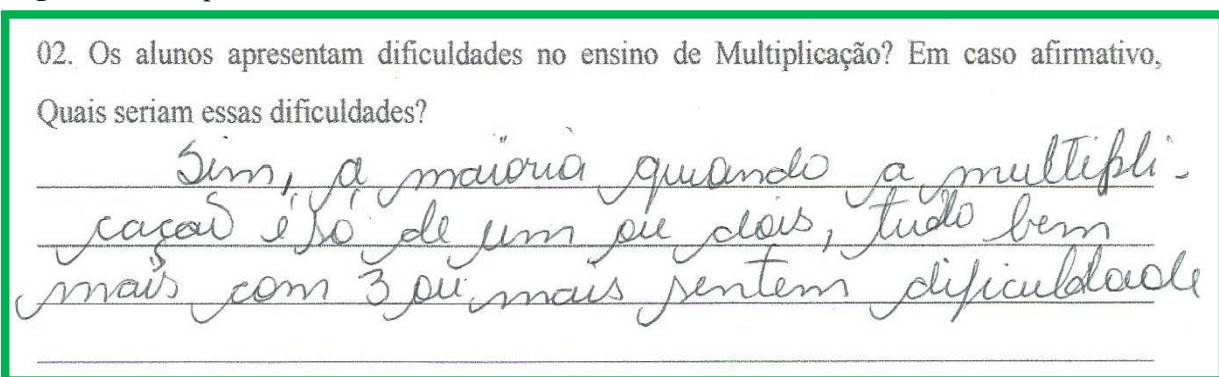 02. Os alunos apresentam dificuldades no ensino de Multiplicação? Em caso afirmativo,
Quais seriam essas dificuldades?
Sim, a maioria quando a multipli-
cação é só de um ou dois, tudo bem
mais com 3 ou mais sentem dificuldade